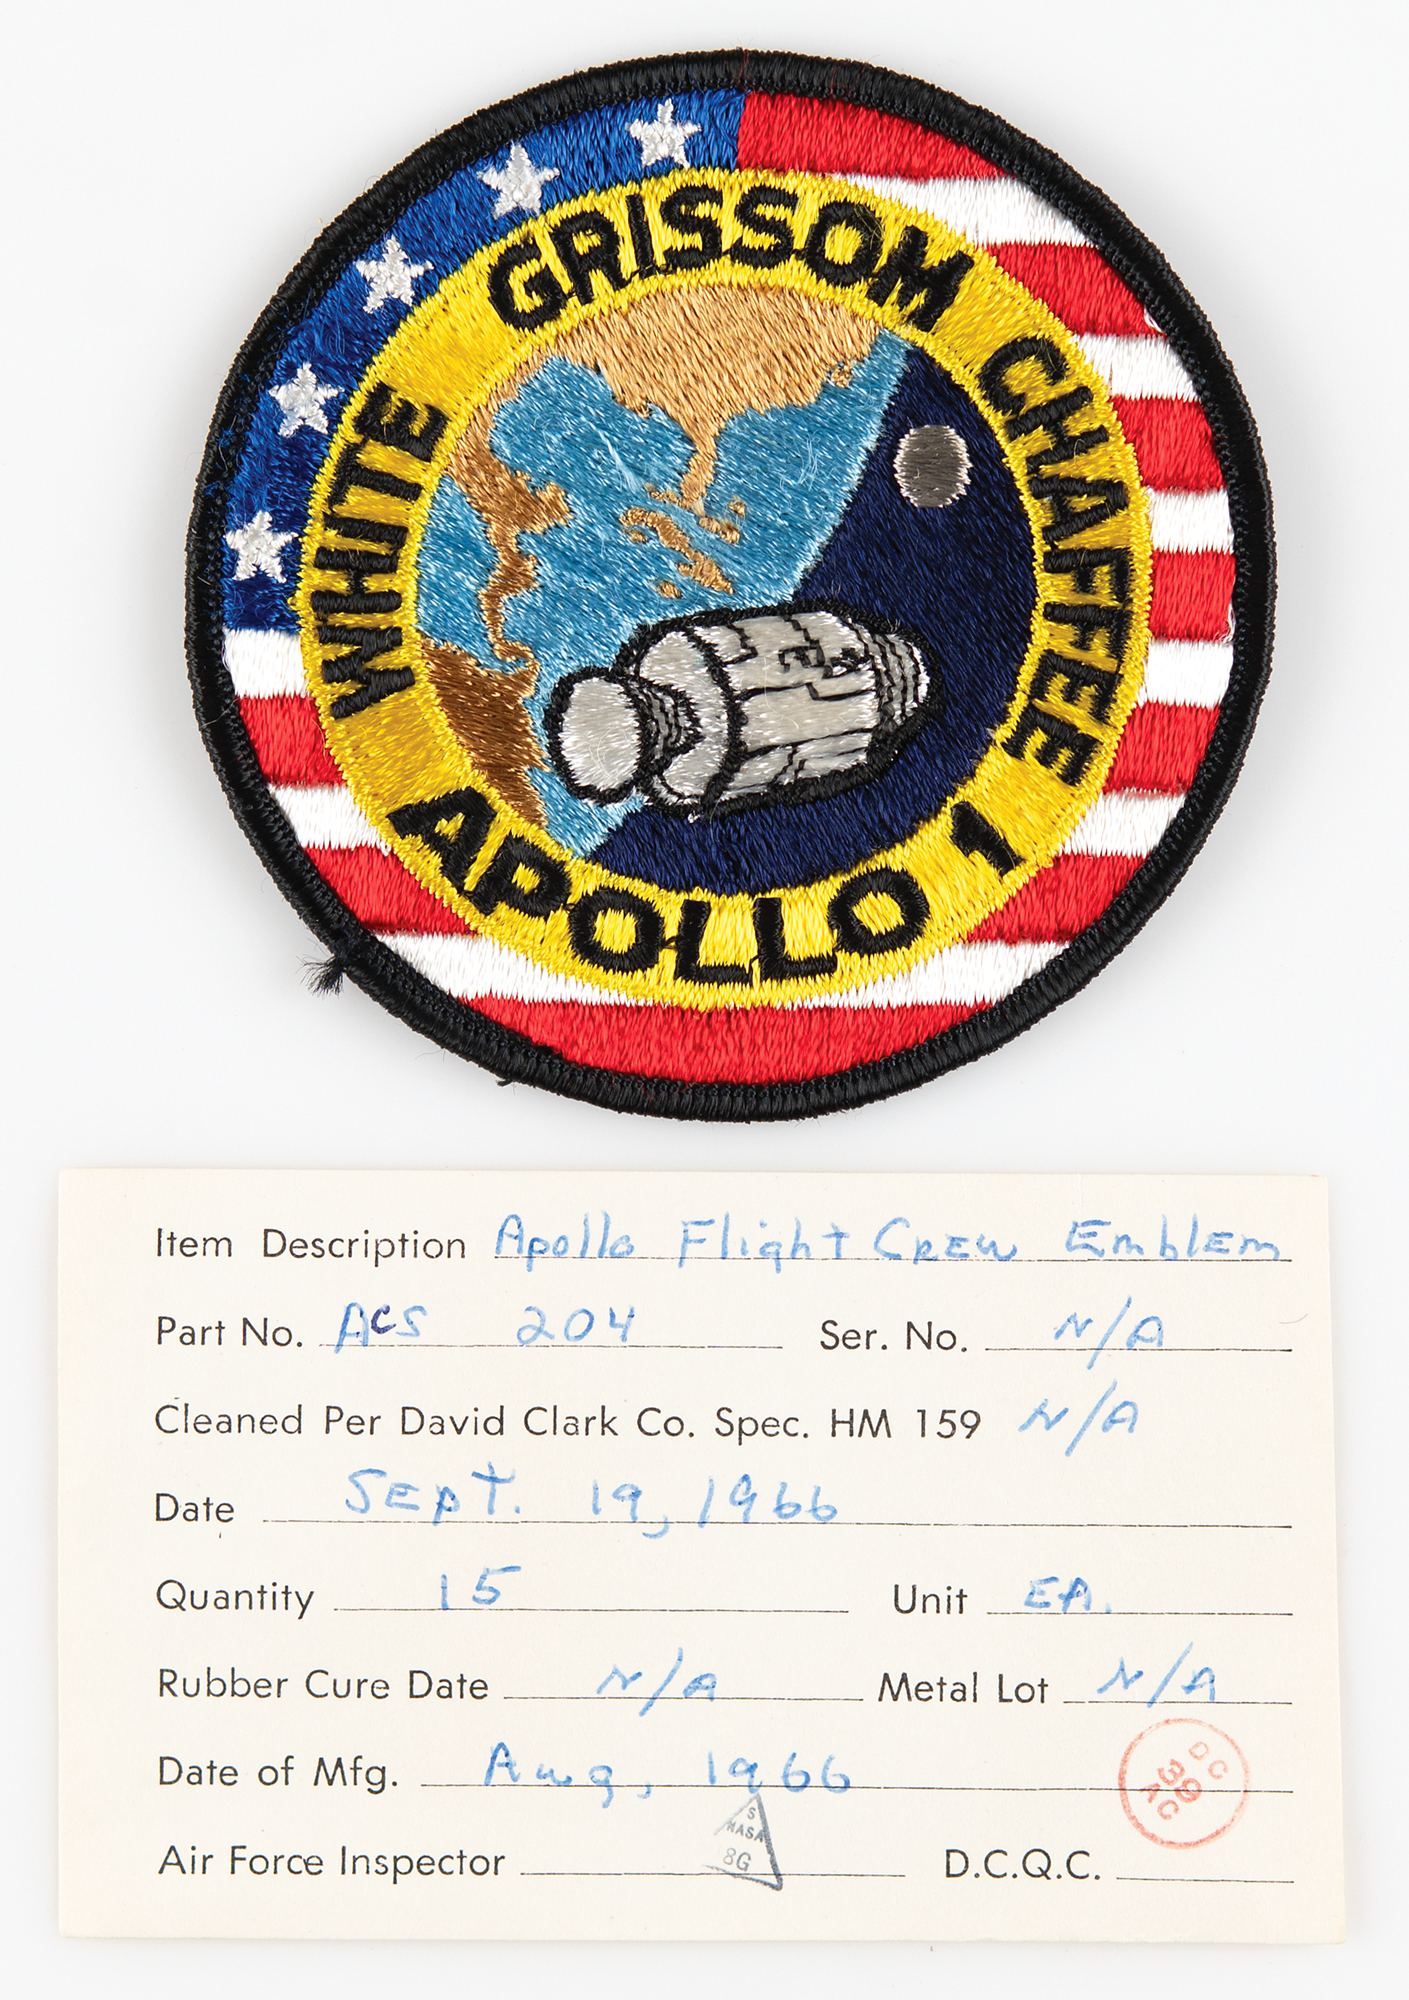 WHITE GRISSOM CHAFFEE
APOLLO 1
Item Description Apollo Flight Crew Emblem
Part No. ACS 204 Ser. No. N/A
Cleaned Per David Clark Co. Spec. HM 159 N/A
Date Sept. 19, 1966
Quantity 15 Unit EA.
Rubber Cure Date N/A Metal Lot N/A
Date of Mfg. Aug, 1966
DC
39
AC
Air Force Inspector D.C.Q.C.
S
NASA
8G